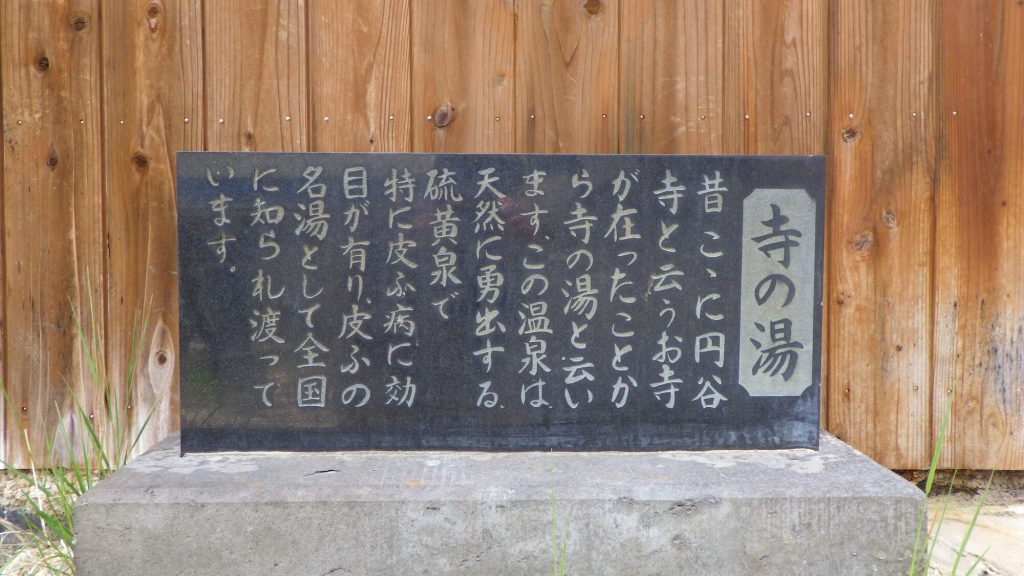 寺の湯
昔こゝに円谷
寺と云うお寺
が在ったことか
ら寺の湯と云い
ます。この温泉は、
天然に勇出する、
硫黄泉で
特に皮ふ病に効
目が有り、皮ふの
名湯として全国
に知られ渡って
います。